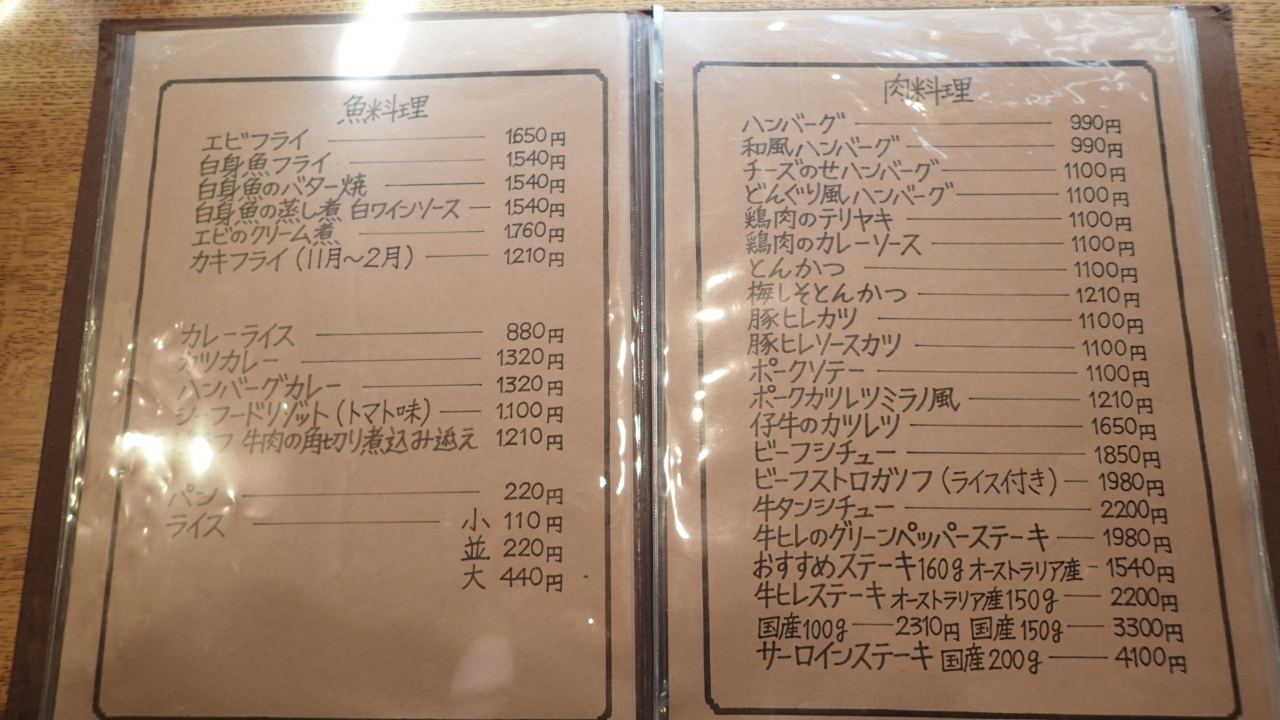 魚料理
エビフライ 1650円
白身魚フライ 1540円
白身魚のバター焼 1540円
白身魚の蒸し煮 白ワインソース 1540円
エビのクリーム煮 1760円
カキフライ(11月〜2月) 1210円
カレーライス 880円
カツカレー 1320円
ハンバーグカレー 1320円
シーフードリゾット(トマト味) 1100円
牛肉の角切り煮込み添え 1210円
パン 220円
ライス 小 110円
並 220円
大 440円
肉料理
ハンバーグ 990円
和風ハンバーグ 990円
チーズのせハンバーグ 1100円
どんぐり風ハンバーグ 1100円
鶏肉のテリヤキ 1100円
鶏肉のカレーソース 1100円
とんかつ 1100円
梅しそとんかつ 1210円
豚ヒレカツ 1100円
豚ヒレソースカツ 1100円
ポークソテー 1100円
ポークカツレツミラノ風 1210円
仔牛のカツレツ 1650円
ビーフシチュー 1850円
ビーフストロガノフ(ライス付き) 1980円
牛タンシチュー 2200円
牛ヒレのグリーンペッパーステーキ 1980円
おすすめステーキ160g オーストラリア産 1540円
牛ヒレステーキ オーストラリア産150g 2200円
国産100g 2310円 国産150g 3300円
サーロインステーキ 国産200g 4100円